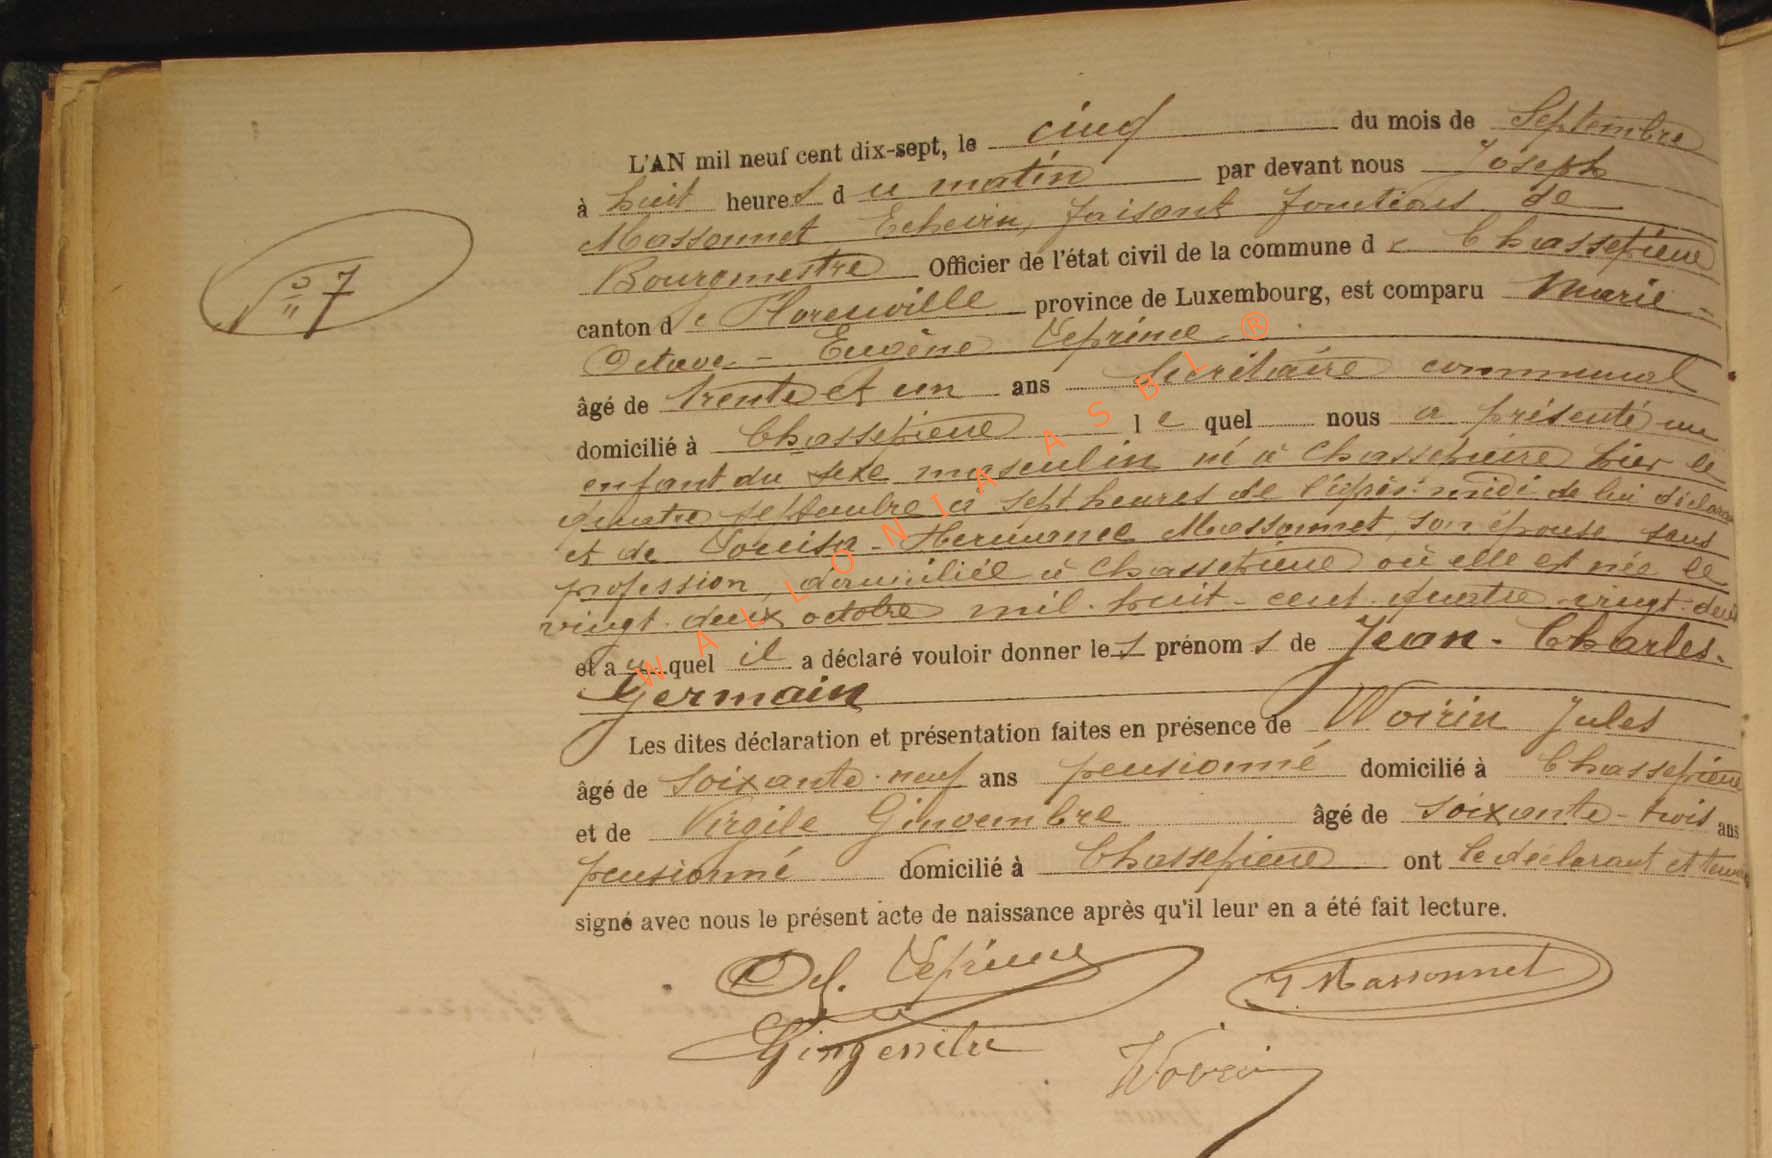 N° 7
L'AN mil neuf cent dix-sept, le cinq du mois de Septembre
à huit heures du matin par devant nous Joseph
Massonnet Echevin, faisant fonctions de
Bourgmestre Officier de l'état civil de la commune de Chassepierre
canton de Florenville province de Luxembourg, est comparu Marie-
Octave-Eugène Leprince
âgé de trente et un ans Secrétaire communal
domicilié à Chassepierre lequel nous a présenté un
enfant du sexe masculin né à Chassepierre hier le
quatre septembre à sept heures de l'après-midi de lui déclarant
et de Louisa-Hermance Massonnet, son épouse sans
profession, domiciliée à Chassepierre où elle est née le
vingt-deux octobre mil-huit-cent-quatre-vingt-deux
et auquel il a déclaré vouloir donner les prénoms de Jean-Charles-
Germain
Les dites déclaration et présentation faites en présence de Woirin Jules
âgé de soixante-neuf ans pensionné domicilié à Chassepierre
et de Virgile Gingembre âgé de soixante-trois ans
pensionné domicilié à Chassepierre ont le déclarant et témoins
signé avec nous le présent acte de naissance après qu'il leur en a été fait lecture.
Leprince J Massonnet
Gingembre Woirin
WALLONIA ASBL ®